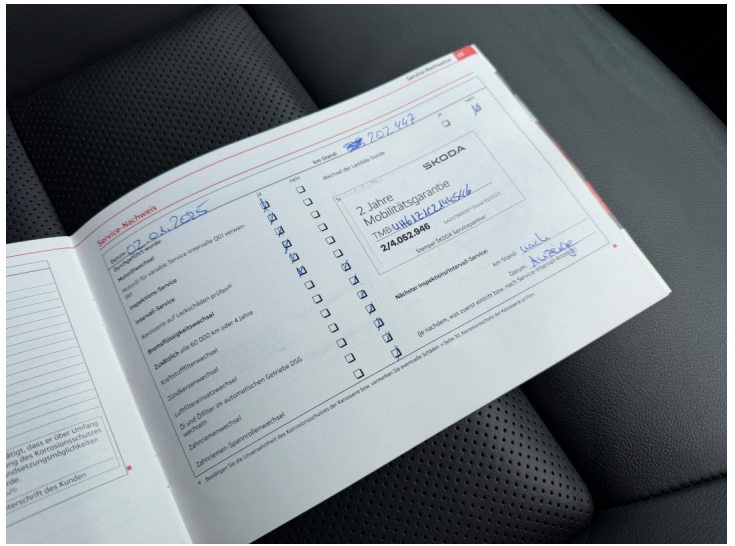 Service-Nachweise
Service-Nachweis
Datum: 02.01.2025
km-Stand: 202 447
Durchgeführt wurde:
ja
nein
Motorölwechsel
Motoröl für variable Service-Intervalle QG1 verwen-
det
Inspektions-Service
Intervall-Service
Karosserie auf Lackschäden prüfen¹⁾
Bremsflüssigkeitswechsel
Zusätzlich alle 60 000 km oder 4 Jahre
Kraftstofffilterwechsel
Zündkerzenwechsel
Luftfiltereinsatzwechsel
Öl und Ölfilter im automatischen Getriebe DSG
wechseln
Zahnriemenwechsel
Zahnriemen-Spannrollenwechsel
ja
nein
Wechsel der Lambda-Sonde
SKODA
2 Jahre
Mobilitätsgarantie
2/4.052.946
Stempel SKODA Servicepartner
Nächster Inspektions-/Intervall-Service:
km-Stand: nach
Datum: Anzeige
(je nachdem, was zuerst eintritt bzw. nach Service-Intervall-Anzeige)
Bestätigen Sie die Unversehrtheit des Korrosionsschutzes der Karosserie bzw. vermerken Sie eventuelle Schäden → Seite 30, Korrosionsschutz der Karosserie prüfen.
tätigt, dass er über Umfang
ng des Korrosionsschutzes
ndsetzungsmöglichkeiten
rde.
terschrift des Kunden